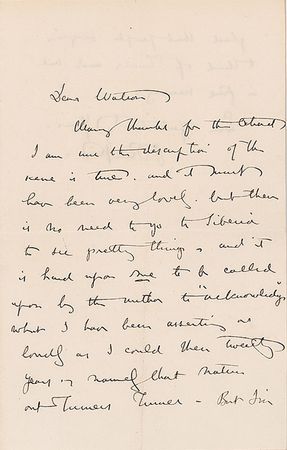 Dear Watson
Many thanks for the
I am sure the description of the
scene is true. and it must
have been very lovely. but there
is no need to go to Siberia
to see pretty things, and it
is hard upon me to be called
upon by the author to "acknowledge"
what I have been asserting as
loudly as I could these twenty
years, namely that nature
out-Turners Turner - But Sir